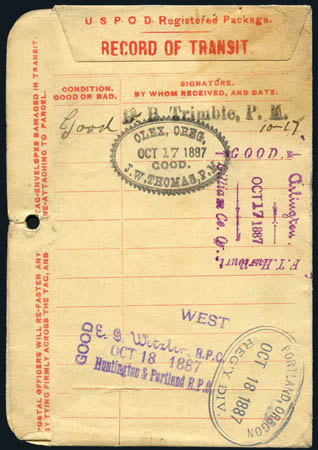 U S P O D Registered Package.
RECORD OF TRANSIT
CONDITION.
GOOD OR BAD.
SIGNATURE.
BY WHOM RECEIVED, AND DATE.
Good
B. Trimble, P. M.
10-17
OLEX, OREG.
OCT 17 1887
GOOD.
J. W. THOMAS, P. M.
GOOD.
Arlington,
OCT 17 1887
Gilliam Co. Or.,
WEST
GOOD
R.P.O.
OCT 18 1887
Huntington & Portland R.P.O.
PORTLAND, OREGON
OCT 18 1887
REG'Y DIV.
TAG-ENVELOPES DAMAGED IN TRANSIT.
RE-ATTACHING TO PARCEL.
POSTAL OFFICERS WILL RE-FASTEN ANY
BY TYING FIRMLY ACROSS THE TAG, AND